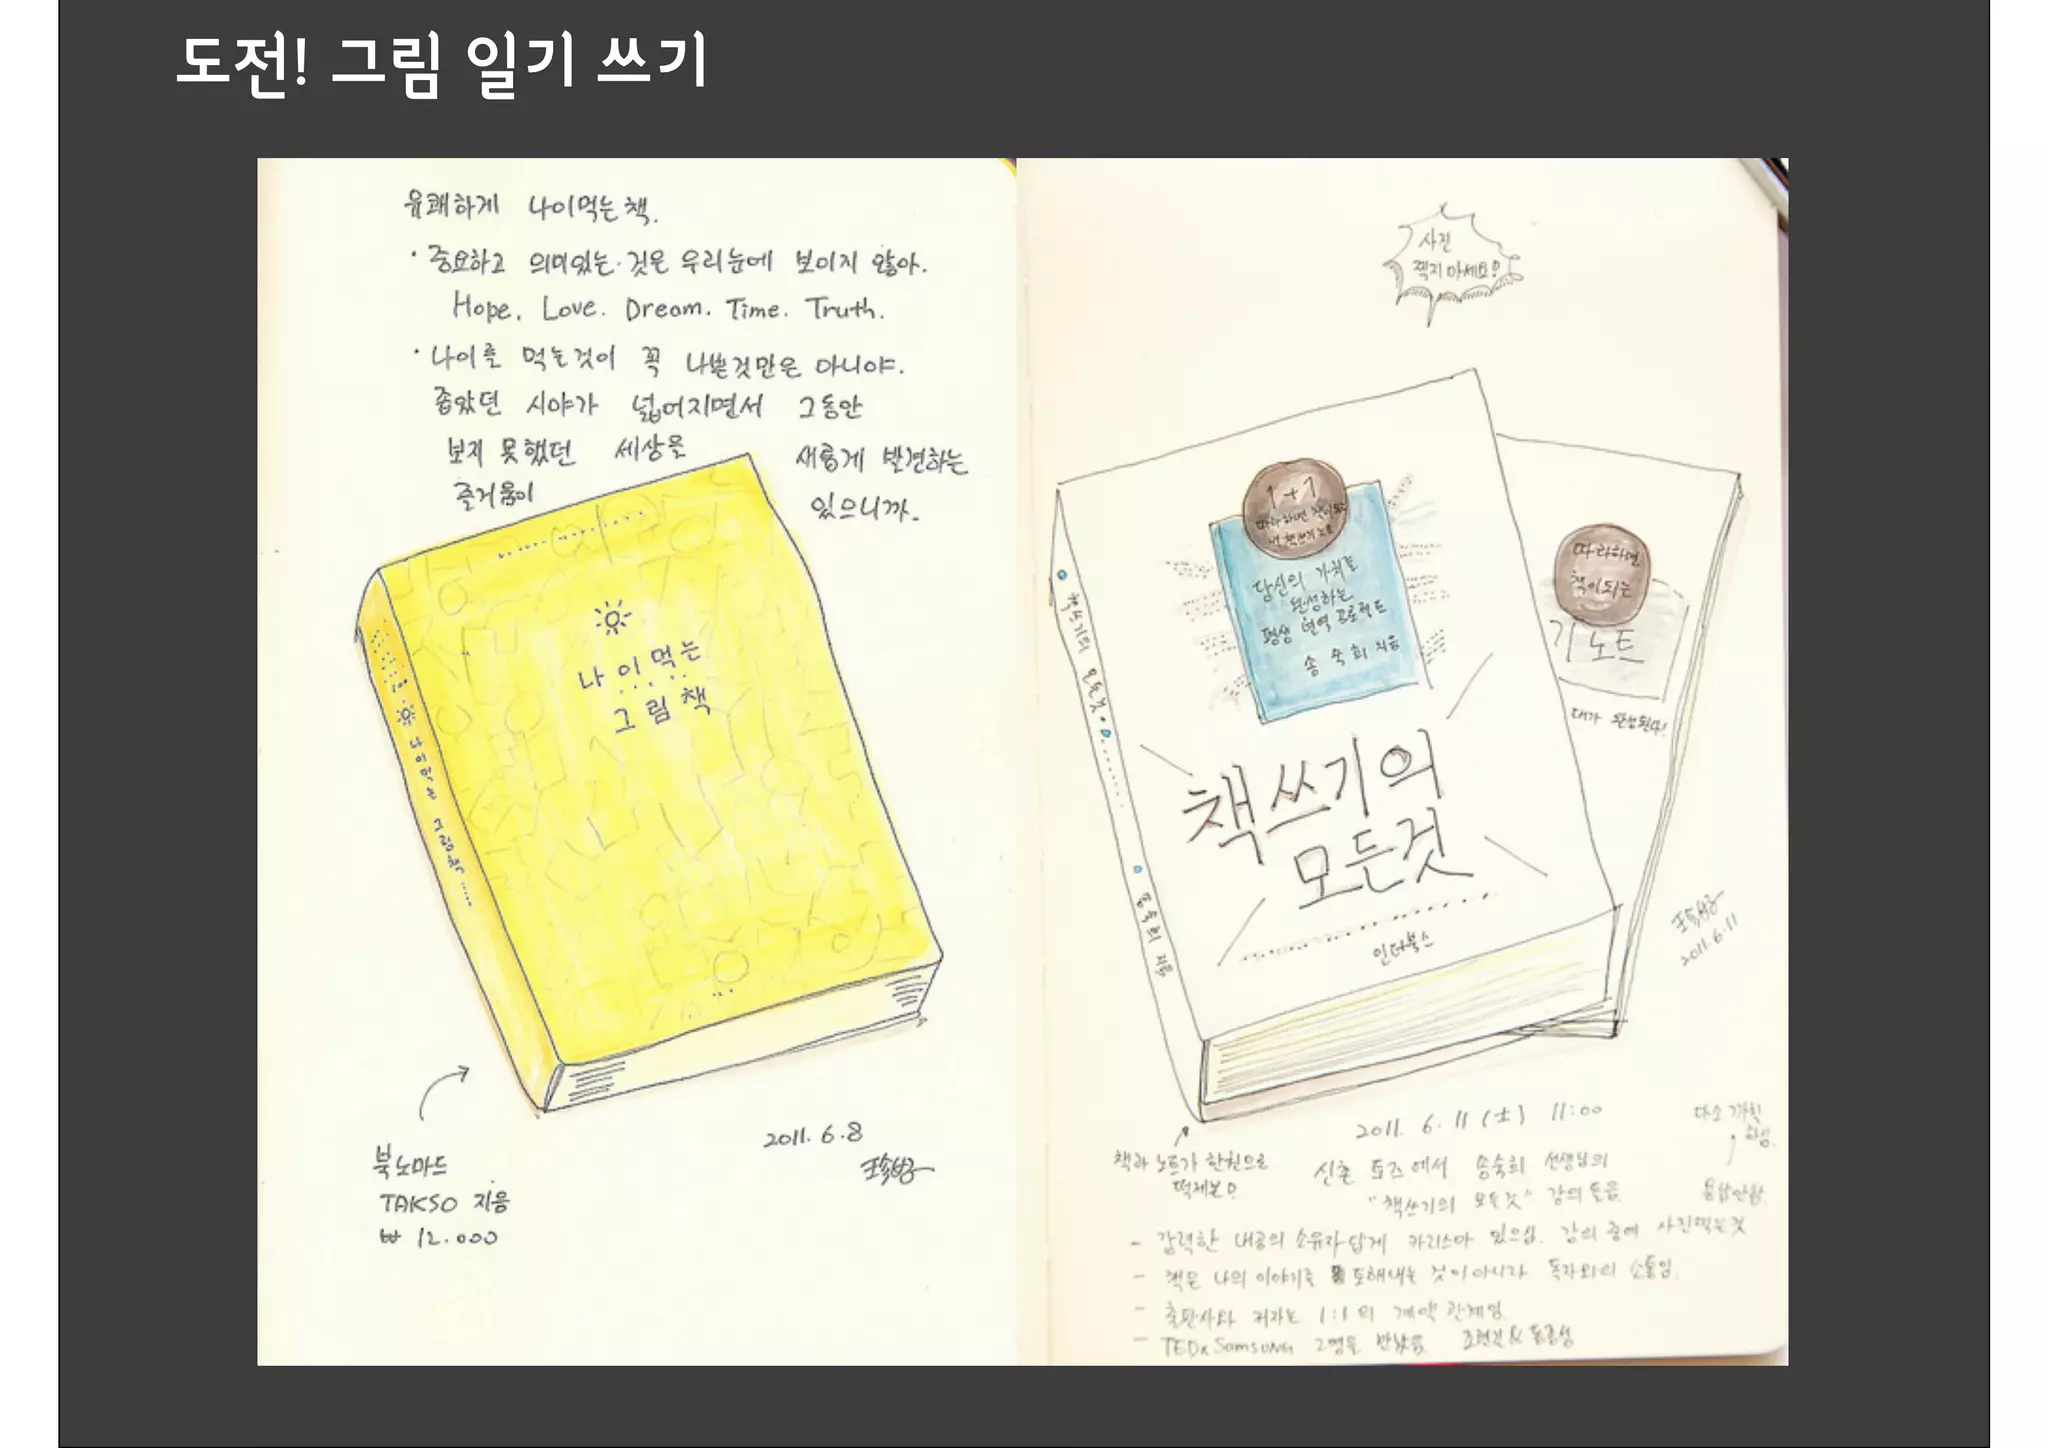 도전! 그림 일기 쓰기
유쾌하게 나이먹는 책.
· 중요하고 의미있는 것은 우리눈에 보이지 않아.
Hope. Love. Dream. Time. Truth.
· 나이를 먹는것이 꼭 나쁜것만은 아니야.
좁았던 시야가 넓어지면서 그동안
보지 못했던 세상을 새롭게 발견하는
즐거움이 있으니까.
나이먹는
그림책
북노마드
TAKSO 지음
₩ 12.000
2011. 6. 8
사진
찍지마세요!
1+1
따라하면 책이되는
내 책쓰기 노트
당신의 가치를
완성하는
평생 현역 프로젝트
송숙희 지음
책쓰기의
모든것
인더북스
책쓰기의 모든것
송숙희 지음
따라하면
책이되는
기 노트
2011. 6. 11
책과 노트가 한권으로
2011. 6. 11 (土) 11:00
신촌 토즈에서 송숙희 선생님의
"책쓰기의 모든것" 강의 들음.
다소 까칠
하심.
용납안함.
- 강력한 내공의 소유자답게 카리스마 있으심. 강의 중에 사진찍는것
- 책은 나의 이야기를 토해내는 것이 아니라 독자와의 소통임.
- 출판사와 저자는 1:1의 계약관계임.
- TEDxSamsung 2명을 만났음.